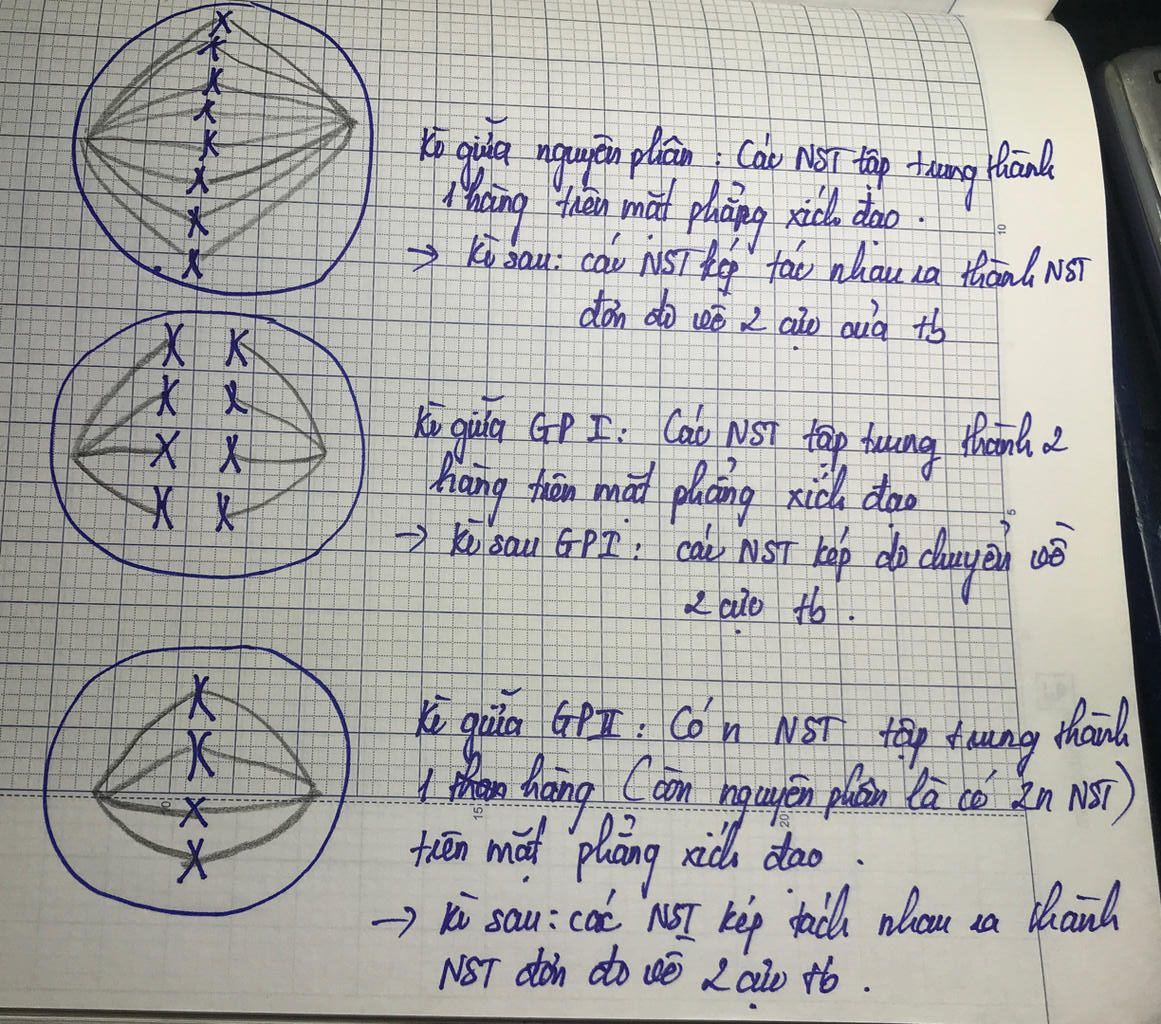 Kì giữa nguyên phân : Các NST tập trung thành
1 hàng trên mặt phẳng xích đạo .
→ Kì sau: các NST kép tác nhau ra thành NST
đơn do về 2 cực của tb
Kì giữa GP I: Các NST tập trung thành 2
hàng trên mặt phẳng xích đạo
→ Kì sau GPI : các NST kép do chuyển về
2 cực tb .
Kì giữa GPII : Có n NST tập trung thành
1 hàng (còn nguyên phân là có 2n NST)
trên mặt phẳng xích đạo .
→ Kì sau: các NST kép tách nhau ra thành
NST đơn do về 2 cực tb .
10
5
20
15
20